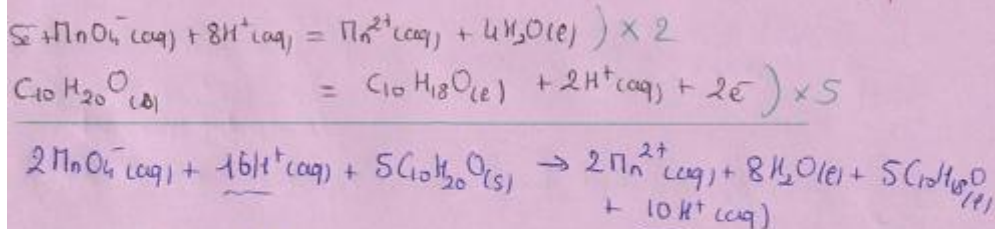 5e⁻ + MnO₄⁻(aq) + 8H⁺(aq) = Mn²⁺(aq) + 4H₂O(l) ) × 2
C₁₀H₂₀O(s) = C₁₀H₁₈O(l) + 2H⁺(aq) + 2e⁻ ) × 5
2MnO₄⁻(aq) + 16H⁺(aq) + 5C₁₀H₂₀O(s) → 2Mn²⁺(aq) + 8H₂O(l) + 5C₁₀H₁₈O(l)
+ 10H⁺(aq)